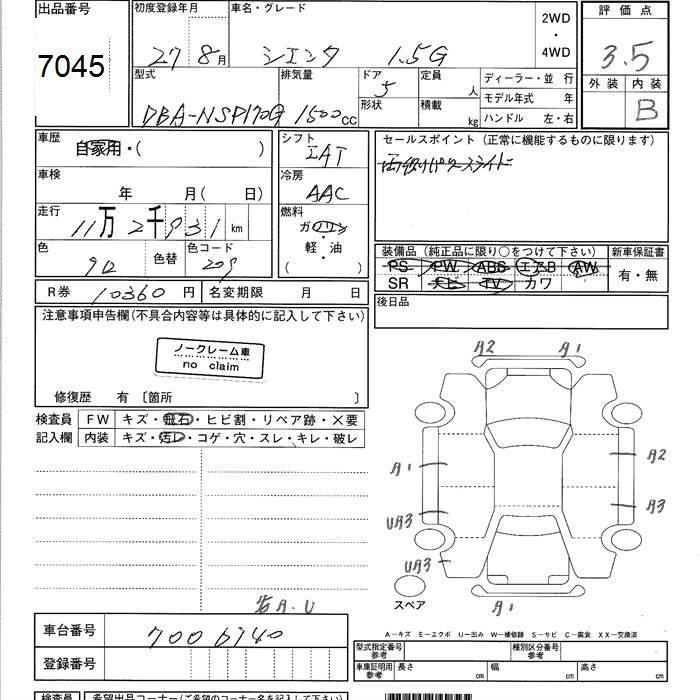 出品番号
7045
初度登録年月
27 8月
車名・グレード
シエンタ 1.5G
2WD
・
4WD
評価点
3.5
外装 内装
B
型式
DBA-NSP170G
排気量
1500cc
ドア
5
形状
定員
人
積載
kg
ディーラー・並 行
モデル年式 年
ハンドル 左・右
車歴
自家用・( )
車検
年 月( 日)
走行
11万2千931km
色
色替
色コード
209
シフト
IAT
冷房
AAC
燃料
ガソリン
軽・油
( )
セールスポイント (正常に機能するものに限ります)
両側パワースライド
装備品 (純正品に限り○をつけて下さい)
PS PW ABS エアB AW
SR ナビ TV カワ
新車保証書
有・無
後日品
R券 10360円
名変期限 月 日
注意事項申告欄(不具合内容等は具体的に記入して下さい)
ノークレーム車
no claim
修復歴 有 〔箇所 〕
検査員
記入欄
FW キズ・飛石・ヒビ割・リペア跡・×要
内装 キズ・汚レ・コゲ・穴・スレ・キレ・破レ
A2 A1
A1 A2
UA3 A3
UA3
A1
スペア
A.U
A-キズ E-エクボ U-凹み W-補修跡 S-サビ C-腐食 XX-交換済
車台番号
7006740
登録番号
型式指定番号
参考
種別区分番号
参考
車庫証明用
参考
長さ cm 幅 cm 高さ cm
検査員
希望出品コーナー(ご希望のコーナー名を記入して下さい)